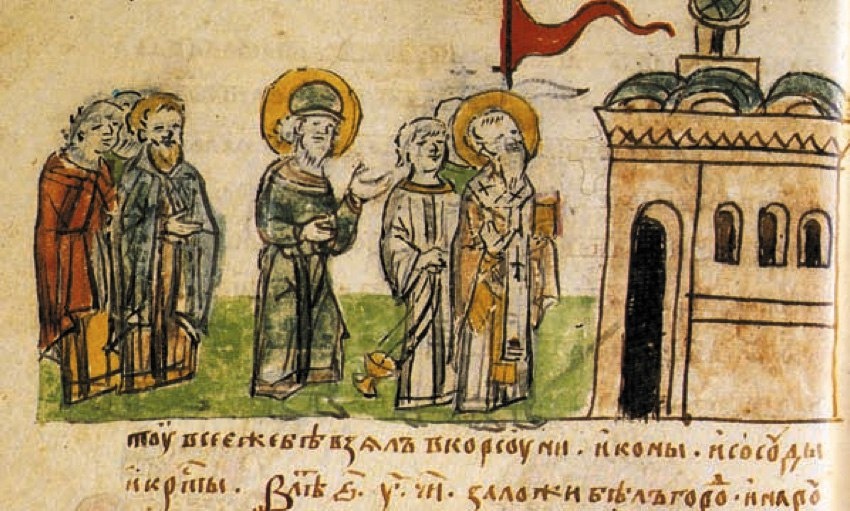 тоу все еже бѣ взялъ в корсоуни . иконы . и сосоуды
и крⷭ҇ты . В лѣⷮ ѕ҃ . у҃ . заложи бѣлъгороⷣ . и наро